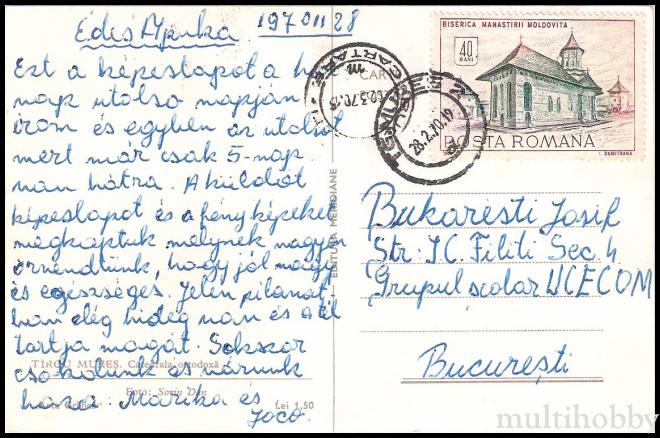 Édes Apuka 1970 II 28
Ezt a képeslapot a hó
nap utolsó napján
írom és egyben az utolsót
mert már csak 5-nap
van hátra. A küldöt
képeslapot és a fényképeket
megkaptuk melynek nagyon
örrendtünk, hogy jól nagy
és egészséges. Jelen pilanat-
ban elég hideg van és A tél
tartja magát. Sokszor
csokolunk és várunk
haza. Marika és
Joco.
TÎRGU MUREȘ. Catedrala ortodoxă
Foto: Sorin Dan
Lei 1,50
EDITURA MERIDIANE
CAR
CARTARE
28.2.70.19
BISERICA MANASTIRII MOLDOVITA
40
BANI
POSTA ROMANA
I. DUMITRANA
Bukaresti Josif
Str. I.C. Filiti Sec. 4
Grupul școlar UCECOM
București
multihobby